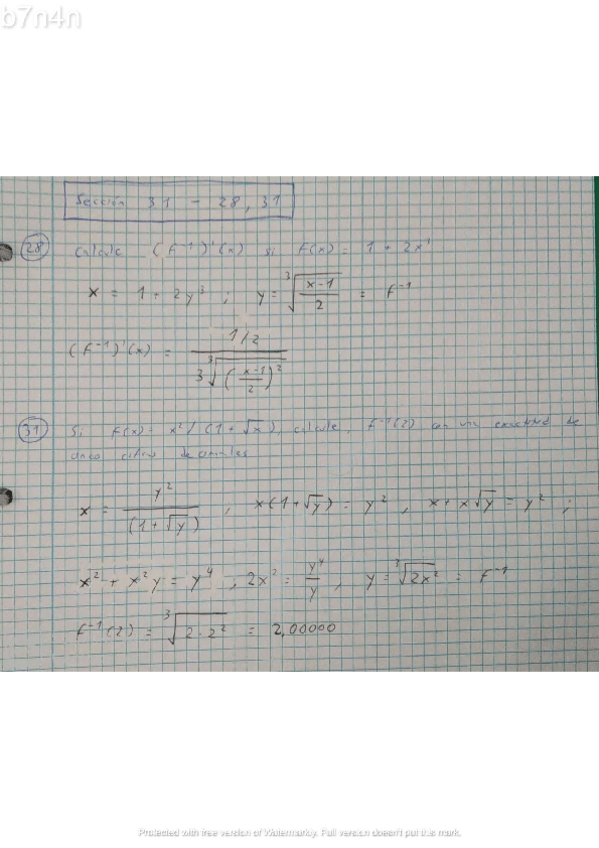 b7n4n
Sección 31 - 28, 31
28 Calcule (f⁻¹)'(x) si f(x) = 1 + 2x³
x = 1 + 2y³ ; y = ∛((x-1)/2) = f⁻¹
(f⁻¹)'(x) = (1/2)/(3∛(((x-1)/2)²))
31 Si f(x) = x² / (1 + √x), calcule, f⁻¹(2) con una exactitud de
cinco cifras decimales
x = y²/(1+√y) , x(1+√y) = y² , x + x√y = y² ;
x² + x²y = y⁴ , 2x² = y⁴/y , y = ∛(2x²) = f⁻¹
f⁻¹(2) = ∛(2·2²) = 2,00000
Protected with free version of Watermarkly. Full version doesn't put this mark.